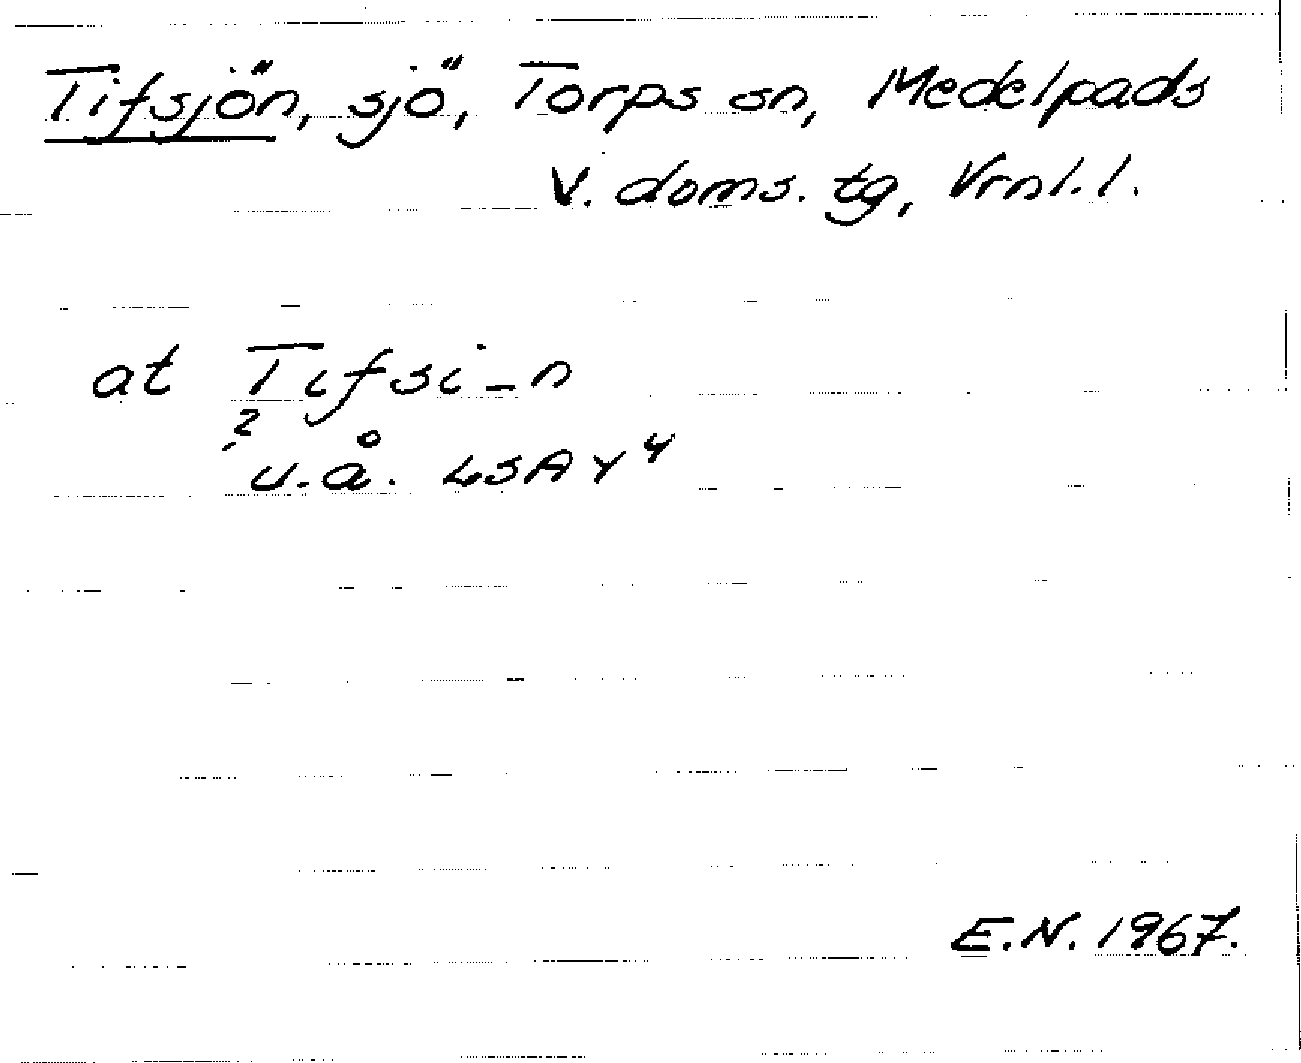 Tifsjön, sjö, Torps sn, Medelpads
V. doms. tg, Vrnl. l.
at Tifsi-n
?
u.å. LSA Y 4
E.N. 1967.